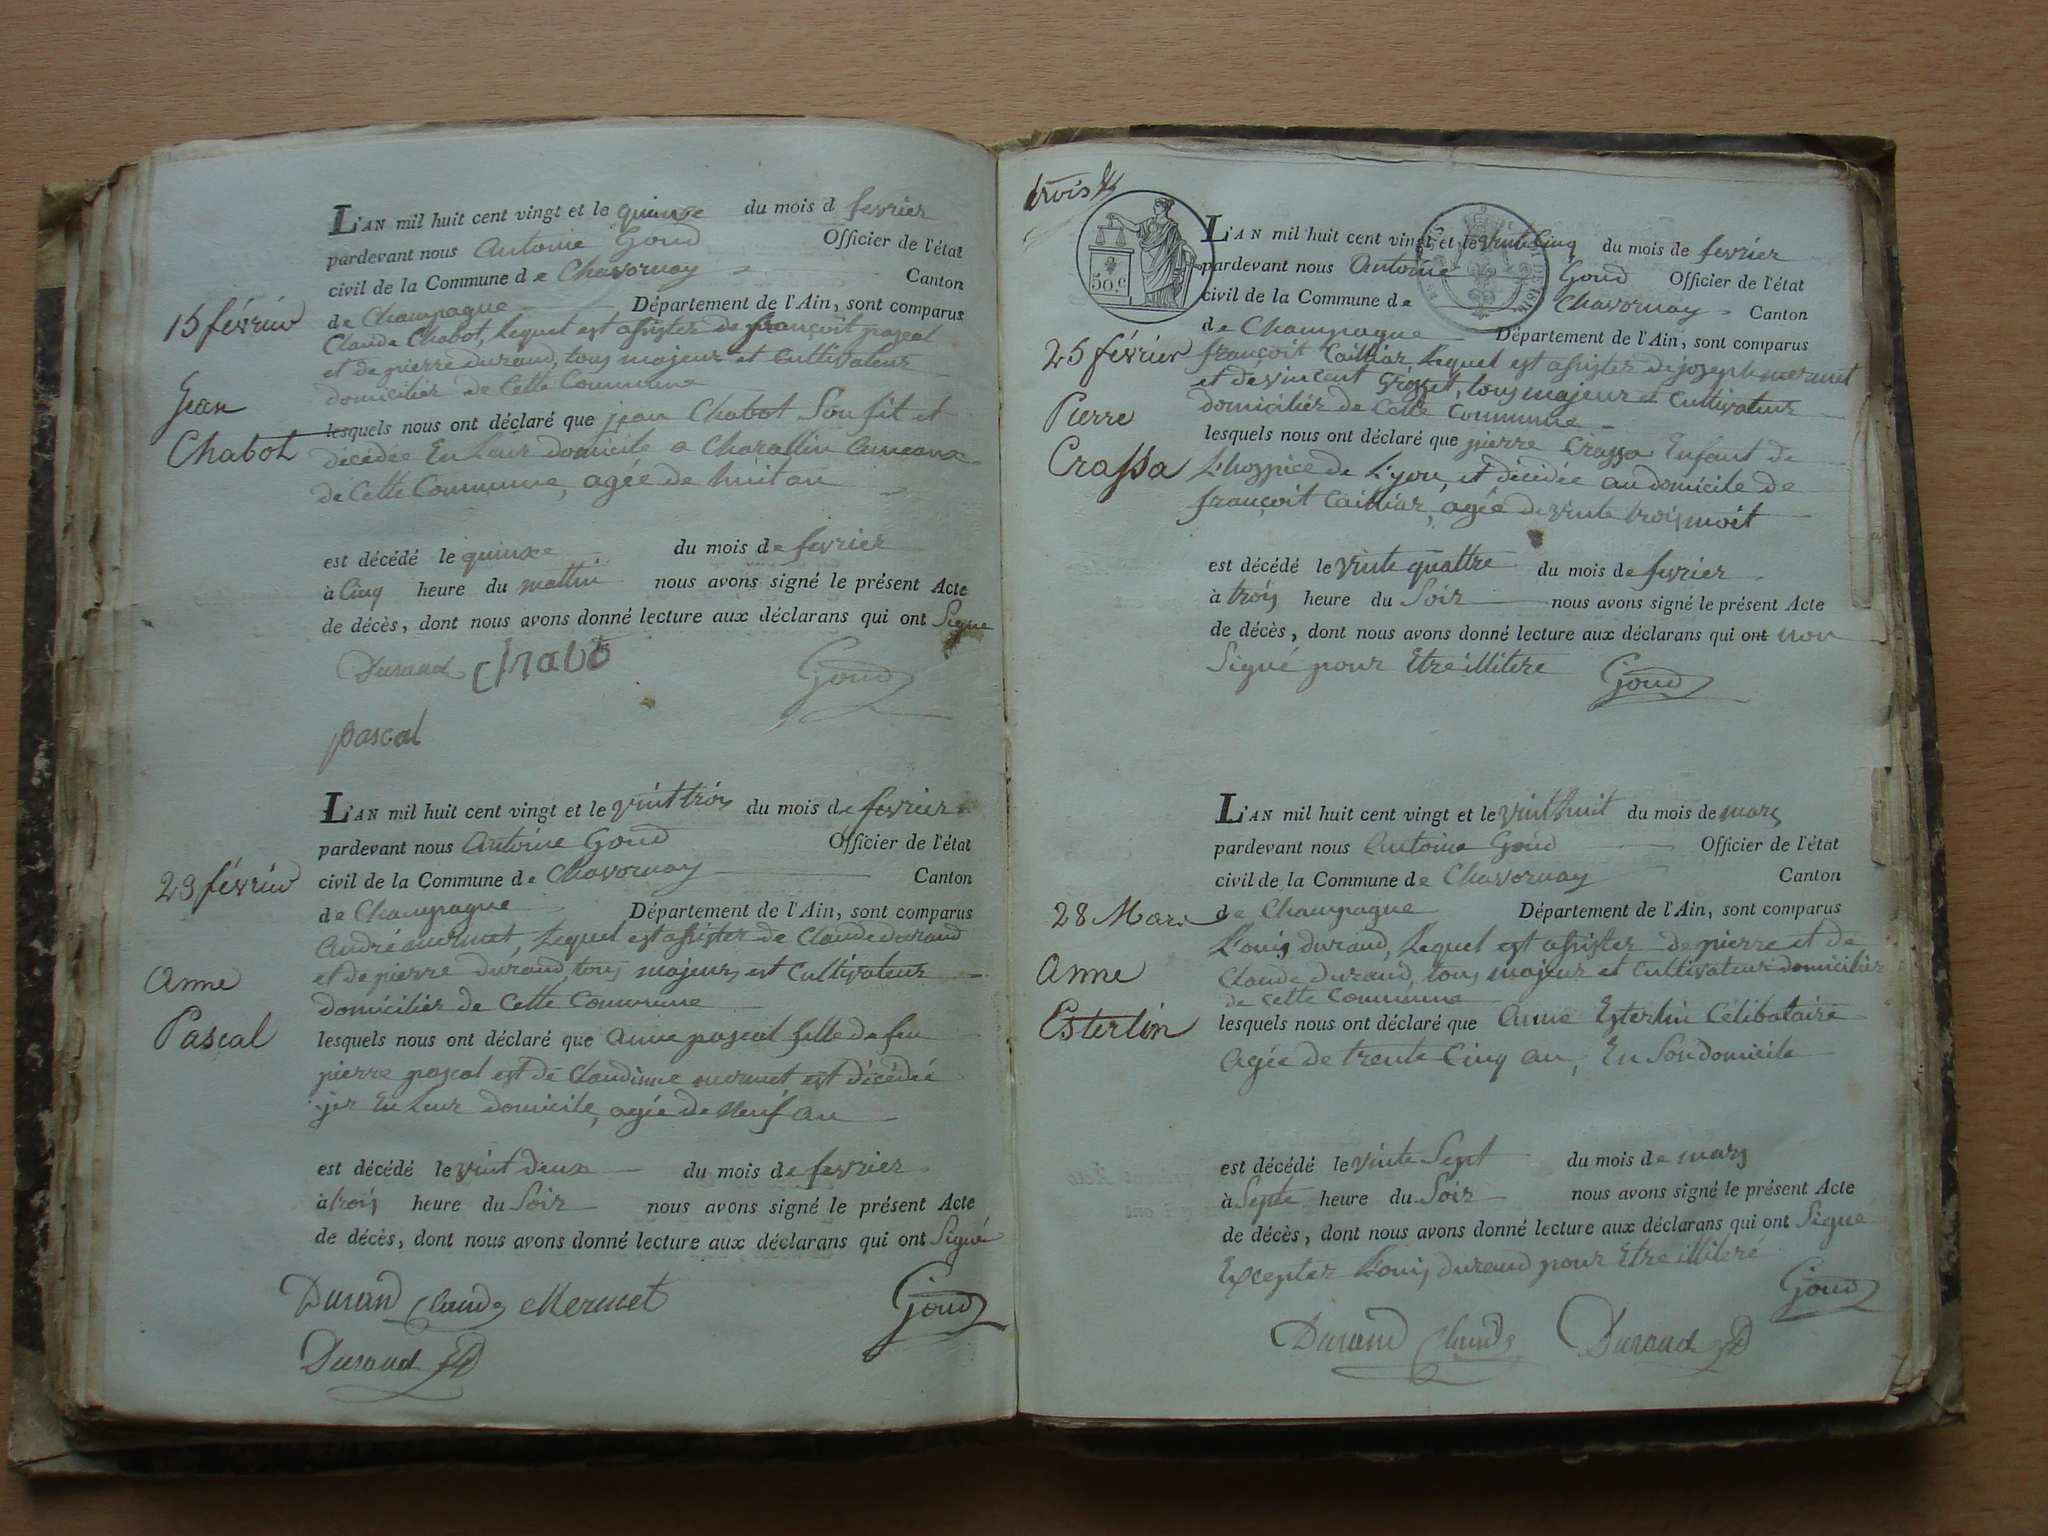 L'AN mil huit cent vingt et le quinze du mois d fevrier
pardevant nous Antoine Goud Officier de l'état
civil de la Commune de Chavornay Canton
de Champagne Département de l'Ain, sont comparus
Claude Chabot, Lequel est assister de françoit pascal
et de pierre durand, tous majeur et Cultivateur
domicilier de Cette Commune
15 février
Jean
Chabot
lesquels nous ont déclaré que jean Chabot Son fit et
décédée En Leur domicile a
de Cette Commune, agée de huit an
est décédé le quinze du mois de fevrier
à Cinq heure du mattin nous avons signé le présent Acte
de décès, dont nous avons donné lecture aux déclarans qui ont Signe
Durand Chabot Goud
pascal
L'AN mil huit cent vingt et le vint trois du mois de fevrier
pardevant nous Antoine Goud Officier de l'état
civil de la Commune de Chavornay Canton
de Champagne Département de l'Ain, sont comparus
André mermet, Lequel est assister de Claude durand
et de pierre durand, tous majeurs est Cultivateur
domicilier de Cette Commune
23 février
Anne
Pascal
lesquels nous ont déclaré que Anne pascal fille de feu
pierre pascal est de Claudinne mermet est décédée
jer En Leur domicile, agée de Neuf an
est décédé le vint deux du mois de fevrier
à trois heure du Soir nous avons signé le présent Acte
de décès, dont nous avons donné lecture aux déclarans qui ont Signé
Durand Claude Mermet Goud
Durand
trois
50 c
L'AN mil huit cent vingt et le vinte Cinq du mois de fevrier
pardevant nous Antoine Goud Officier de l'état
civil de la Commune de Chavornay Canton
de Champagne Département de l'Ain, sont comparus
françoit Lequel est assister de joseph mermet
et de vincent tous majeur et Cultivateur
domicilier de Cette Commune
25 février
Pierre
Crassa
lesquels nous ont déclaré que pierre Crassa Enfant de
L'hospice de Lyon, et décédée au domicile de
françoit agée de vinte trois moit
est décédé le vinte quattre du mois de fevrier
à trois heure du Soir nous avons signé le présent Acte
de décès, dont nous avons donné lecture aux déclarans qui ont non
Signé pour Etre illitere Goud
L'AN mil huit cent vingt et le vint huit du mois de mars
pardevant nous Antoine Goud Officier de l'état
civil de la Commune de Chavornay Canton
de Champagne Département de l'Ain, sont comparus
Louis durand, Lequel est assister de pierre et de
Claude durand, tous majeur et Cultivateur domicilier
de cette Commune
28 Mars
Anne
Esterlin
lesquels nous ont déclaré que Anne Esterlin Célibataire
Agée de trente Cinq an, En Son domicile
est décédé le vinte Sept du mois de mars
à Septe heure du Soir nous avons signé le présent Acte
de décès, dont nous avons donné lecture aux déclarans qui ont Signe
Excepter Louis durand pour Etre illiteré
Goud
Durand Claude Durand